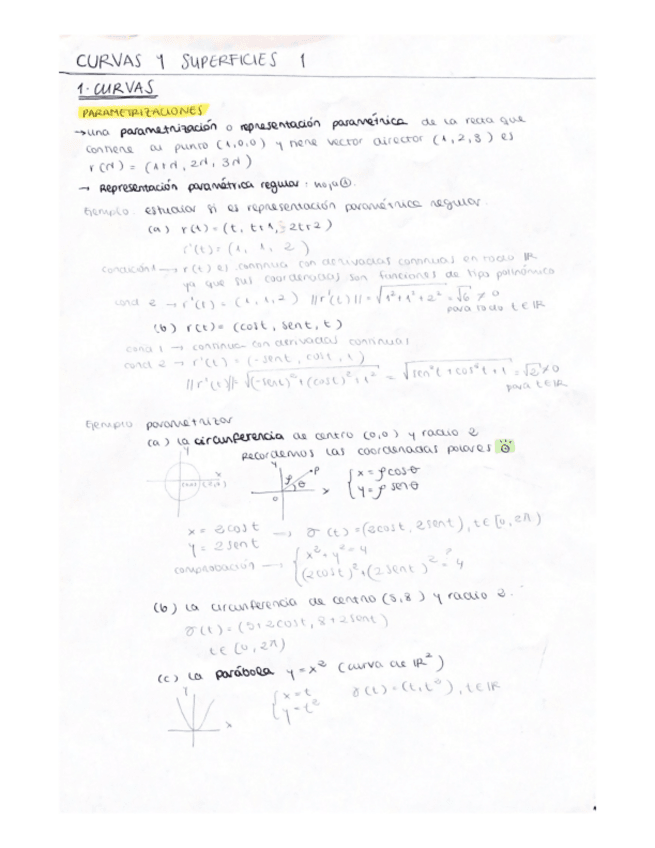 CURVAS Y SUPERFICIES 1
1. CURVAS
PARAMETRIZACIONES
→ una parametrización o representación paramétrica de la recta que
contiene al punto (1,0,0) y tiene vector director (1,2,3) es
r(λ) = (1+λ, 2λ, 3λ)
→ Representación paramétrica regular:
Ejemplo. estudiar si es representación paramétrica regular.
(a) r(t) = (t, t+1, 2t+2)
r'(t) = (1, 1, 2)
condición 1 → r(t) es continua con derivadas continuas en todo IR
ya que sus coordenadas son funciones de tipo polinómico
cond 2 → r'(t) = (1,1,2) ||r'(t)|| = √1²+1²+2² = √6 ≠ 0
para todo t∈IR
(b) r(t) = (cost, sent, t)
cond 1 → continua con derivadas continuas
cond 2 → r'(t) = (-sent, cost, 1)
||r'(t)|| = √(-sent)²+(cost)²+1² = √sen²t+cos²t+1 = √2 ≠ 0
para t∈IR
Ejemplo parametrizar
(a) La circunferencia de centro (0,0) y radio 2
Recordemos las coordenadas polares
y
x
y
ρ
θ
P
x
0
{ x = ρcosθ
y = ρsenθ
x = 2cost → σ(t) = (2cost, 2sent), t∈[0,2π)
y = 2sent
comprobación → { x²+y² = 4
(2cost)²+(2sent)² =? 4
(b) La circunferencia de centro (5,8) y radio 2.
σ(t) = (5+2cost, 8+2sent)
t∈[0,2π)
(c) La parábola y=x² (curva de IR²)
Y
x
{ x = t
y = t²
σ(t) = (t,t²), t∈IR